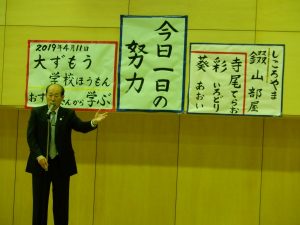 2019年4月11日
大ずもう
学校ほうもん
おすさんから学ぶ
今日一日の
努力
しころやま
錣山部屋
寺尾てらお
彩いろどり
葵あおい